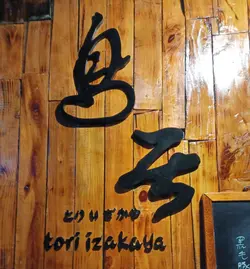 鳥
居
とりいざかや
tori izakaya